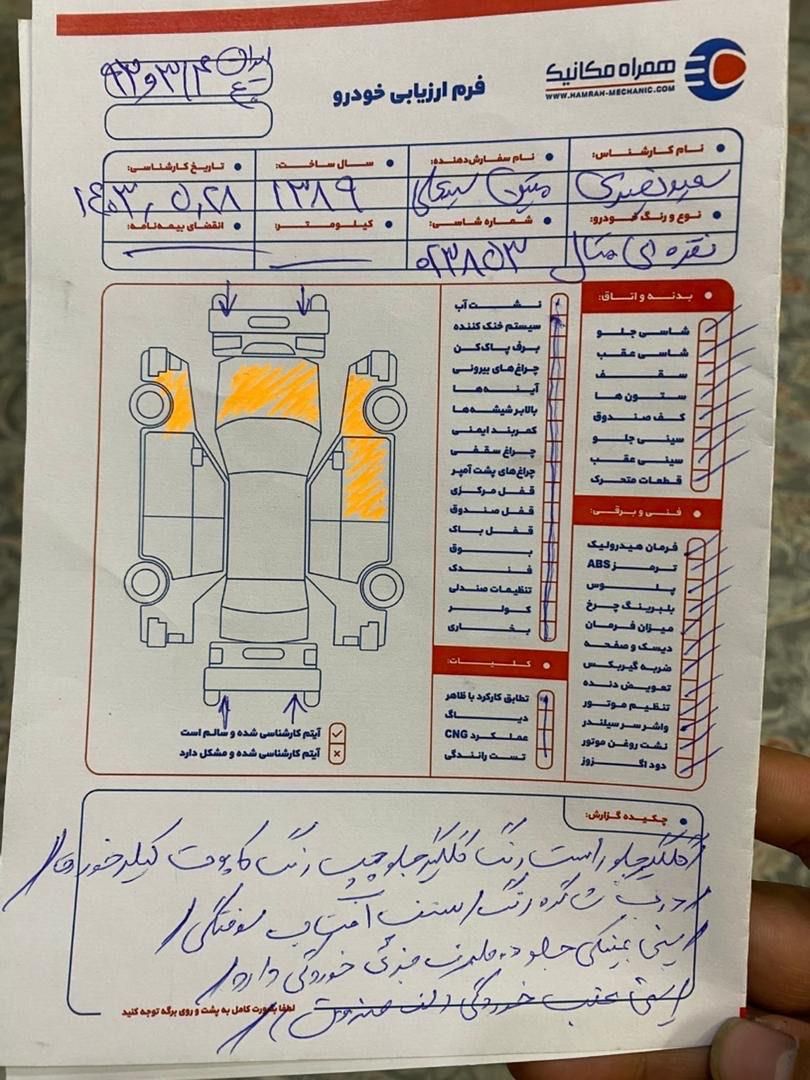 همراه مکانیک
WWW.HAMRAH-MECHANIC.COM
فرم ارزیابی خودرو
ایران
نام کارشناس:
نام سفارش‌دهنده:
سال ساخت:
تاریخ کارشناسی:
سعید نصیری
۱۳۸۹
۱۴۰۳,۵,۲۸
نوع و رنگ خودرو:
شماره شاسی:
کیلومتر:
انقضای بیمه‌نامه:
نقره ای متال
۰۲۳۸۵۳
بدنه و اتاق:
شاسی جلو
شاسی عقب
سقف
ستون ها
کف صندوق
سینی جلو
سینی عقب
قطعات متحرک
فنی و برقی:
فرمان هیدرولیک
ترمز ABS
پلوس
بلبرینگ چرخ
میزان فرمان
دیسک و صفحه
ضربه گیربکس
تعویض دنده
تنظیم موتور
واشر سر سیلندر
نشت روغن موتور
دود اگزوز
نشت آب
سیستم خنک کننده
برف پاک‌کن
چراغ‌های بیرونی
آینه‌ها
بالابر شیشه‌ها
کمربند ایمنی
چراغ سقفی
چراغ‌های پشت آمپر
قفل مرکزی
قفل صندوق
قفل باک
بوق
فندک
تنظیمات صندلی
کولر
بخاری
کلیات:
تطابق کارکرد با ظاهر
دیاگ
عملکرد CNG
تست رانندگی
آیتم کارشناسی شده و سالم است
آیتم کارشناسی شده و مشکل دارد
چکیده گزارش:
گلگیر جلو راست رنگ گلگیر جلو چپ رنگ کاپوت
درب شاگرد رنگ / سقف آفتاب سوختگی /
سینی جلو خوردگی دارد
سینی عقب خوردگی کف صندوق
لطفا بصورت کامل به پشت و روی برگه توجه کنید